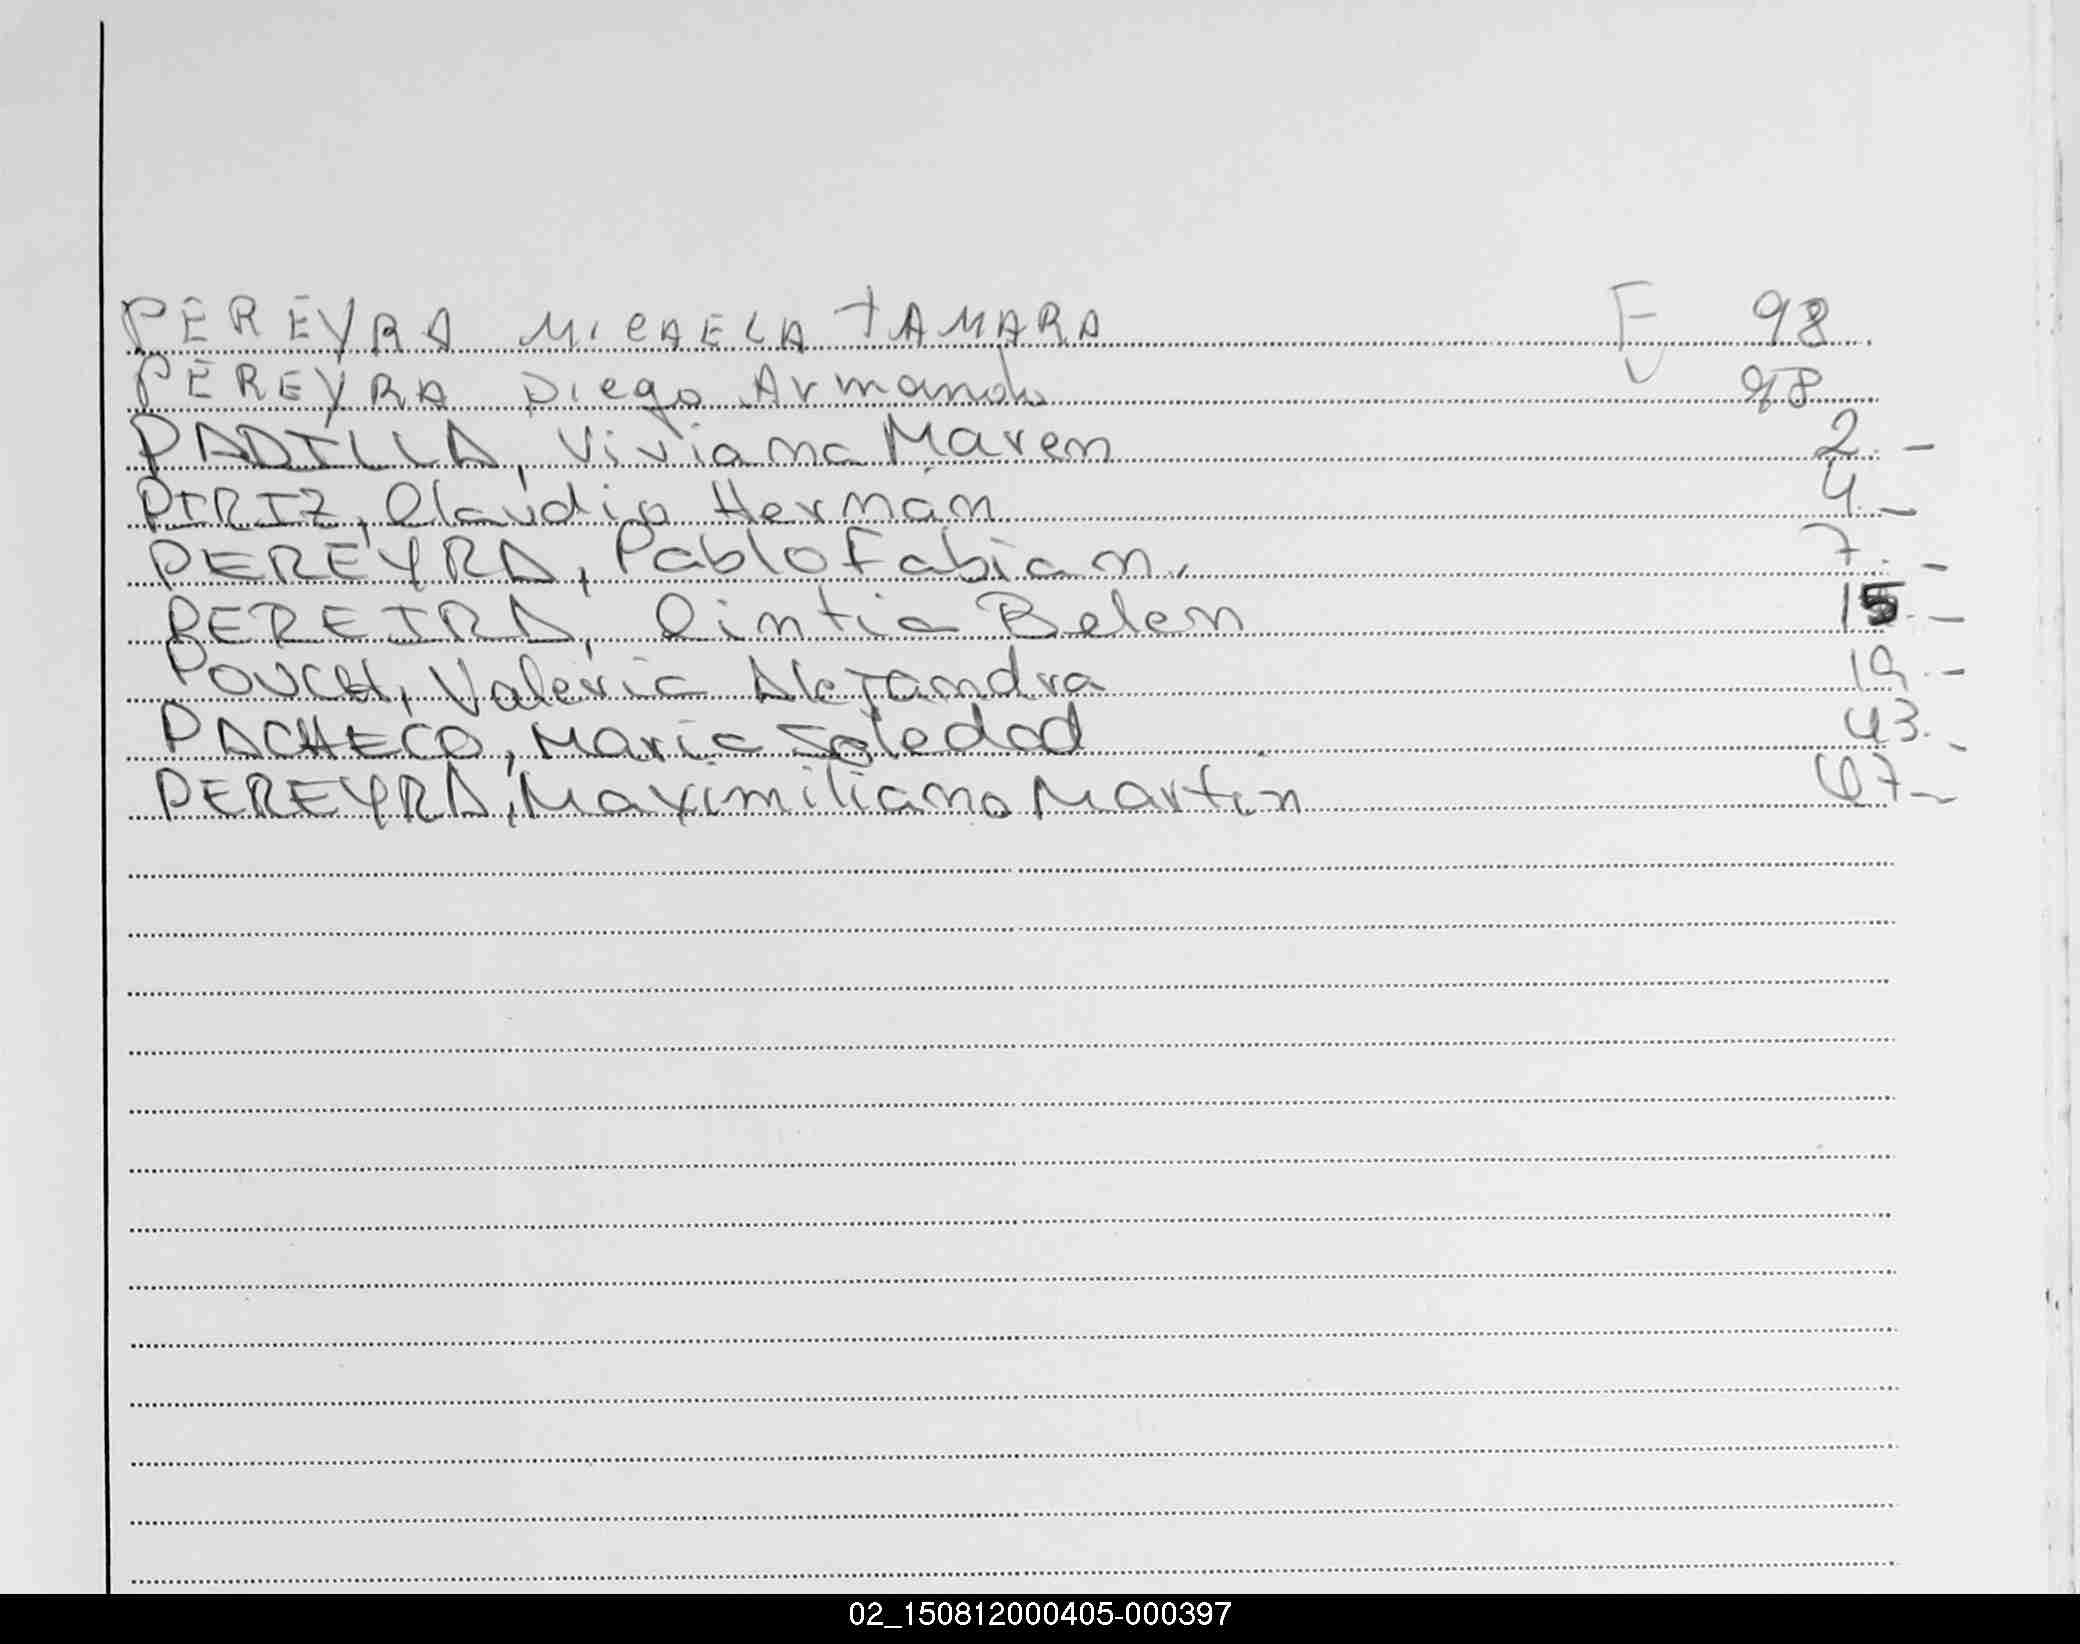 PEREYRA MICAELA TAMARA F 98
PEREYRA Diego Armando V 98
PADILLA, Viviana Maren 2.-
PIRIZ, Claudio Hernán 4.-
PEREYRA, Pablo Fabian. 7.-
PEREIRA, Cintia Belen 15.-
POUCH, Valeria Alejandra 19.-
PACHECO, Maria Soledad 43.-
PEREYRA, Maximiliano Martin 67-
02_150812000405-000397